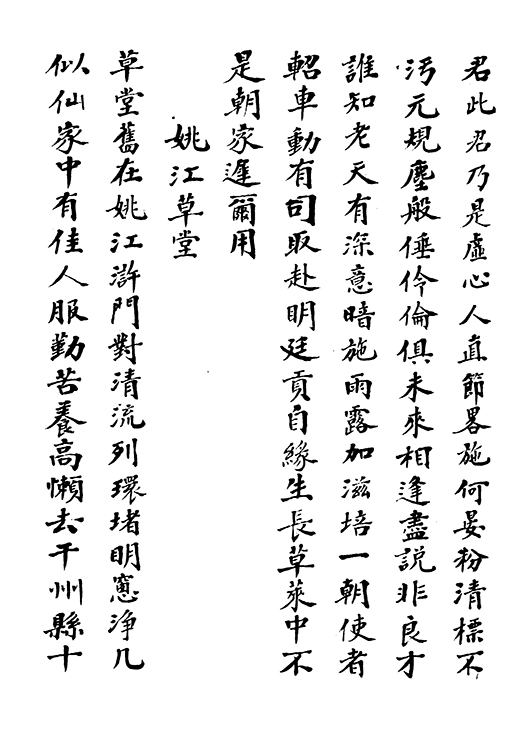 君此君乃是虛心人直節畧施何晏粉清標不
汚元規塵般倕伶倫俱未來相逢盡説非良才
誰知老天有深意暗施雨露加滋培一朝使者
軺車動有司取赴明廷貢自緣生長草萊中不
是朝家遲爾用
姚江草堂
草堂舊在姚江滸門對清流列環堵明窻淨几
似仙家中有佳人服勤苦養高懶去干州縣十